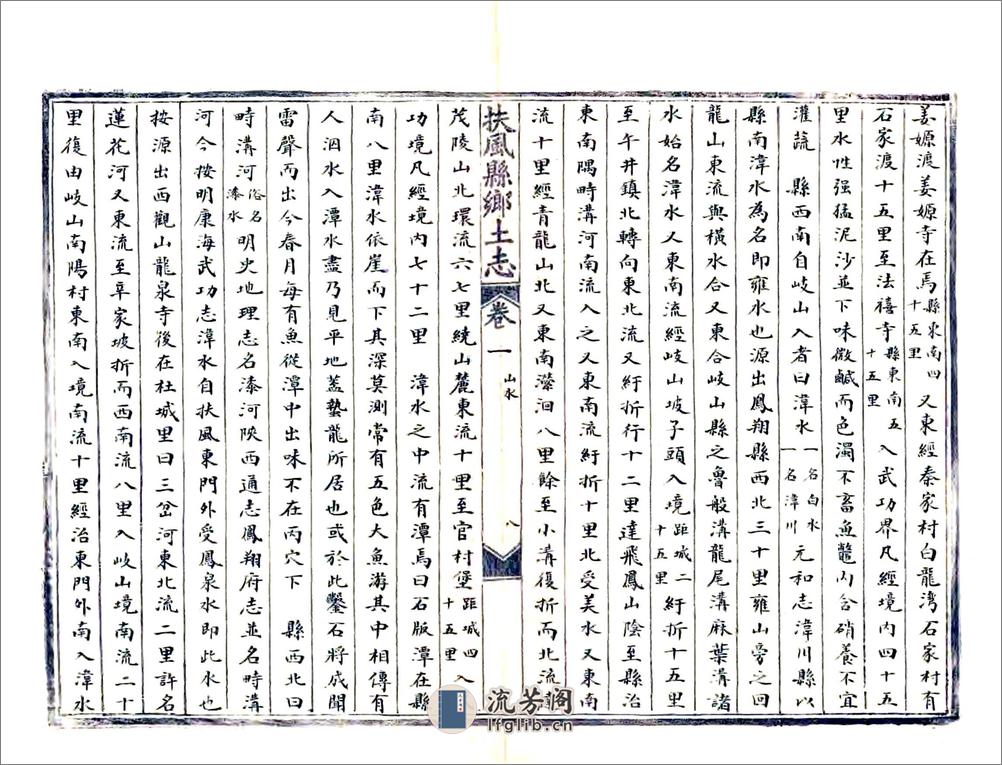 姜嫄渡姜嫄寺在焉縣東南四十五里又東經秦家村白龍灣石家村有
石家渡十五里至法禧寺縣東南五十五里入武功界凡經境內四十五
里水性强猛泥沙並下味微鹹而色濁不畜魚鼈內含硝養不宜
灌蔬 縣西南自岐山入者曰湋水一名白水一名湋川元和志湋川縣以
縣南湋水為名即雍水也源出鳳翔縣西北三十里雍山旁之回
龍山東流與橫水合又東合岐山縣之魯般溝龍尾溝麻葉溝諸
水始名湋水又東南流經岐山坡子頭入境距城二十五里紆折十五里
至午井鎮北轉向東北流又紆折行十二里達飛鳳山陰至縣治
東南隅時溝河南流入之又東南流紆折十里北受美水又東南
流十里經青龍山北又東南瀠洄八里餘至小溝復折而北流
扶風縣鄉土志 卷一 山水 八
茂陵山北環流六七里繞山麓東流十里至官村堡距城四十五里入
功境凡經境內七十二里 湋水之中流有潭焉曰石版潭在縣
南八里湋水依崖而下其深莫測常有五色大魚游其中相傳有
人泅水入潭水盡乃見平地蓋蟄龍所居也或於此鑿石將成聞
雷聲而出今春月每有魚從潭中出味不在丙穴下 縣西北曰
時溝河俗名漆水明史地理志名漆河陝西通志鳳翔府志並名時溝
河今按明康海武功志湋水自扶風東門外受鳳泉水即此水也
按源出西觀山龍泉寺後在杜城里曰三岔河東北流二里許名
蓮花河又東流至辛家坡折而西南流八里入岐山境南流二十
里復由岐山南陽村東南入境南流十里經治東門外南入湋水
流芳阁
lfglib.cn